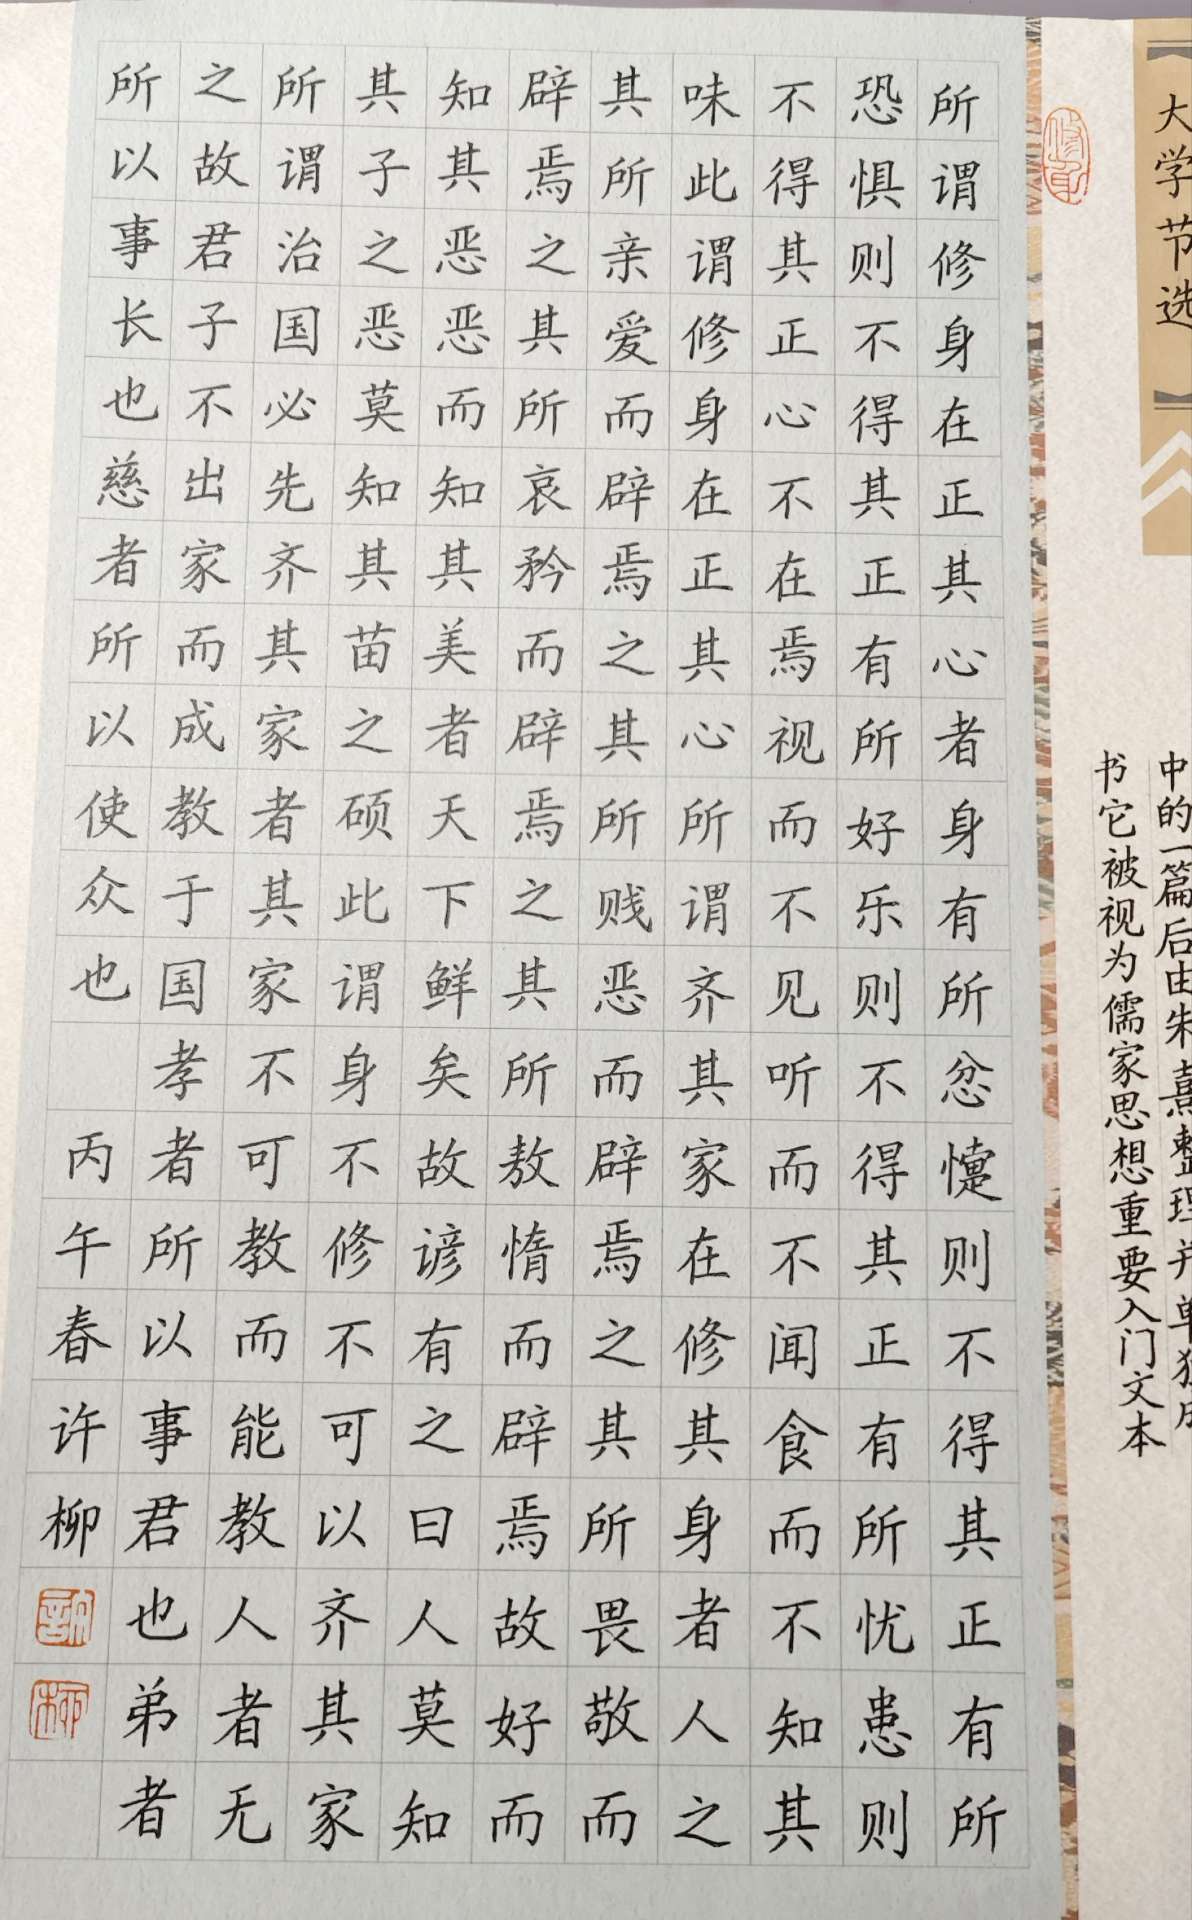 大学节选
中的一篇后由朱熹整理并单独成
书它被视为儒家思想重要入门文本
所谓修身在正其心者身有所忿懥则不得其正有所
恐惧则不得其正有所好乐则不得其正有所忧患则
不得其正心不在焉视而不见听而不闻食而不知其
味此谓修身在正其心所谓齐其家在修其身者人之
其所亲爱而辟焉之其所贱恶而辟焉之其所畏敬而
辟焉之其所哀矜而辟焉之其所敖惰而辟焉故好而
知其恶恶而知其美者天下鲜矣故谚有之曰人莫知
其子之恶莫知其苗之硕此谓身不修不可以齐其家
所谓治国必先齐其家者其家不可教而能教人者无
之故君子不出家而成教于国孝者所以事君也弟者
所以事长也慈者所以使众也 丙午春许柳